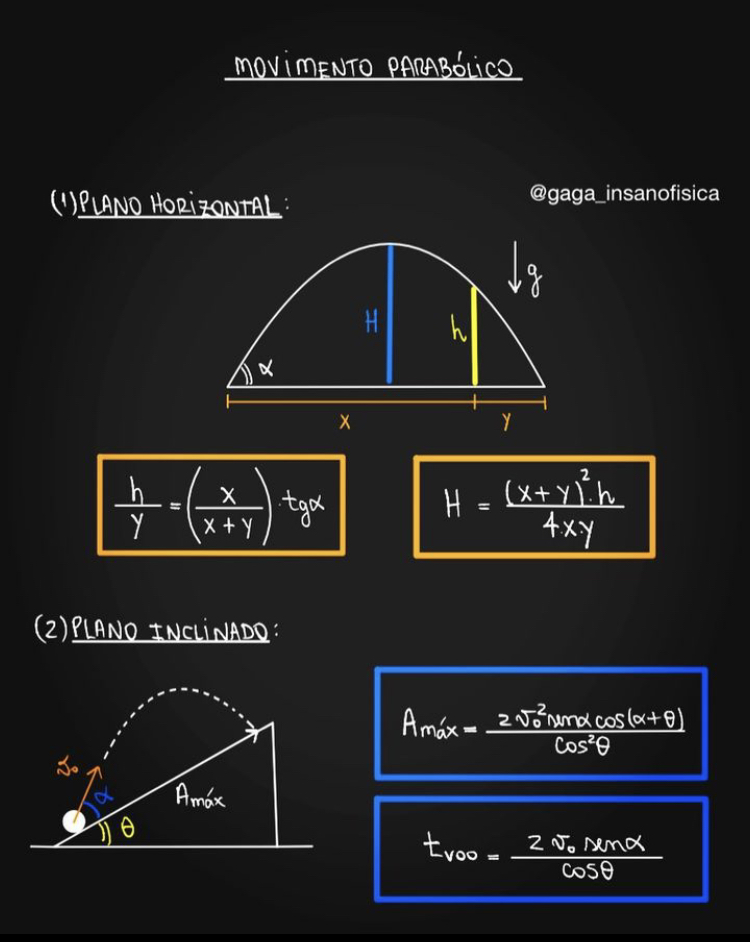 MOVIMENTO PARABÓLICO
@gaga_insanofisica
(1) PLANO HORIZONTAL:
g
H
h
α
x
y
h/y = (x/(x+y)) · tgα
H = (x+y)²·h/4·x·y
(2) PLANO INCLINADO:
v₀
α
θ
Amáx
Amáx = 2v₀²senα cos(α+θ)/cos²θ
tvoo = 2v₀ senα/cosθ